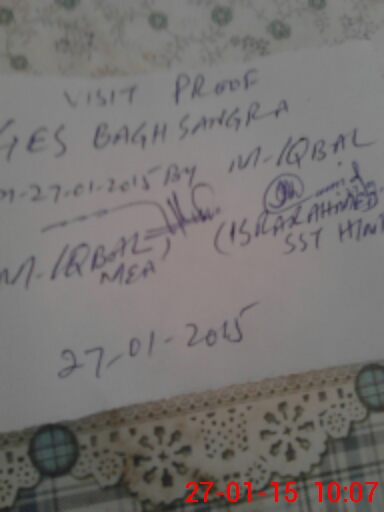 VISIT PROOF
GES BAGH SANGRA
on-27.01.2015 By M-IQBAL
M-IQBAL) (ISRAR AHMED
MEA SST HIN
27-01-2015
27-01-15 10:07